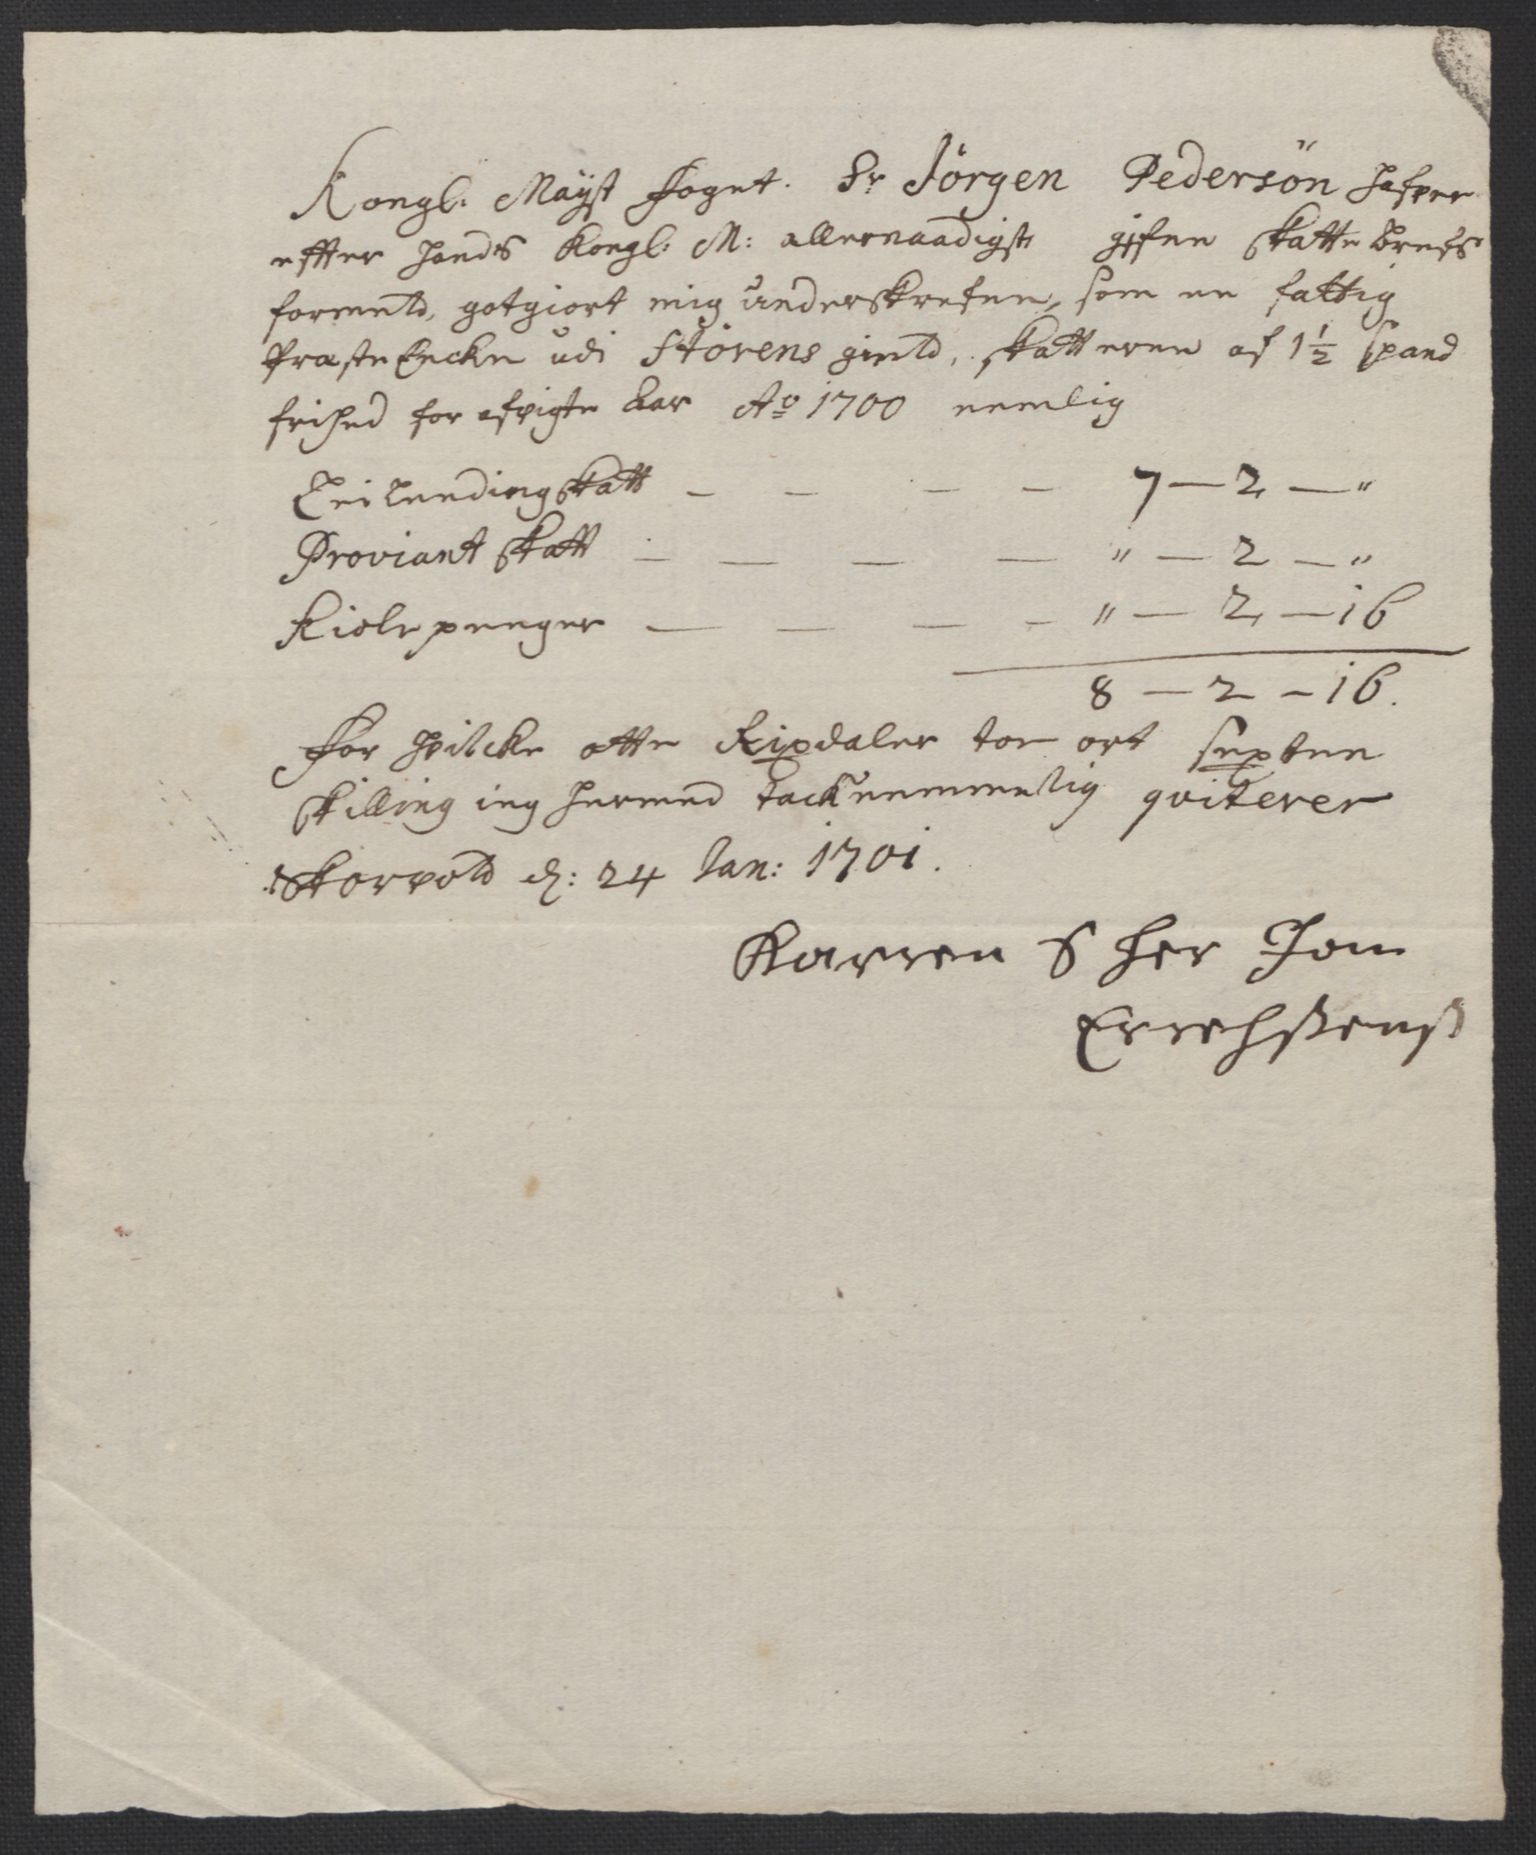 Kongl: Mayst foget. Sr Jörgen Pedersön hafver
effter hands Kongl: M: allernaadigste gifne Skatte brefs
formeld, gotgiort mig underskrefne, som en fattig
Præste Encke udi Störens gield, skatterne af 1½ spand
frihed for afvigte aar Ao 1700 nemlig
Leilendingskatt — — — — 7 — 2 — "
Proviantskatt — — — — " — 2 — "
Kiolepenger — — — — " — 2 — 16
8 — 2 — 16.
For hvilcke otte Rixdaler toe ort sexten
skilling ieg hermed tacknemmelig qviterer
Skorvold d: 24 Jan: 1701.
Karren S her Jon
Errechsens